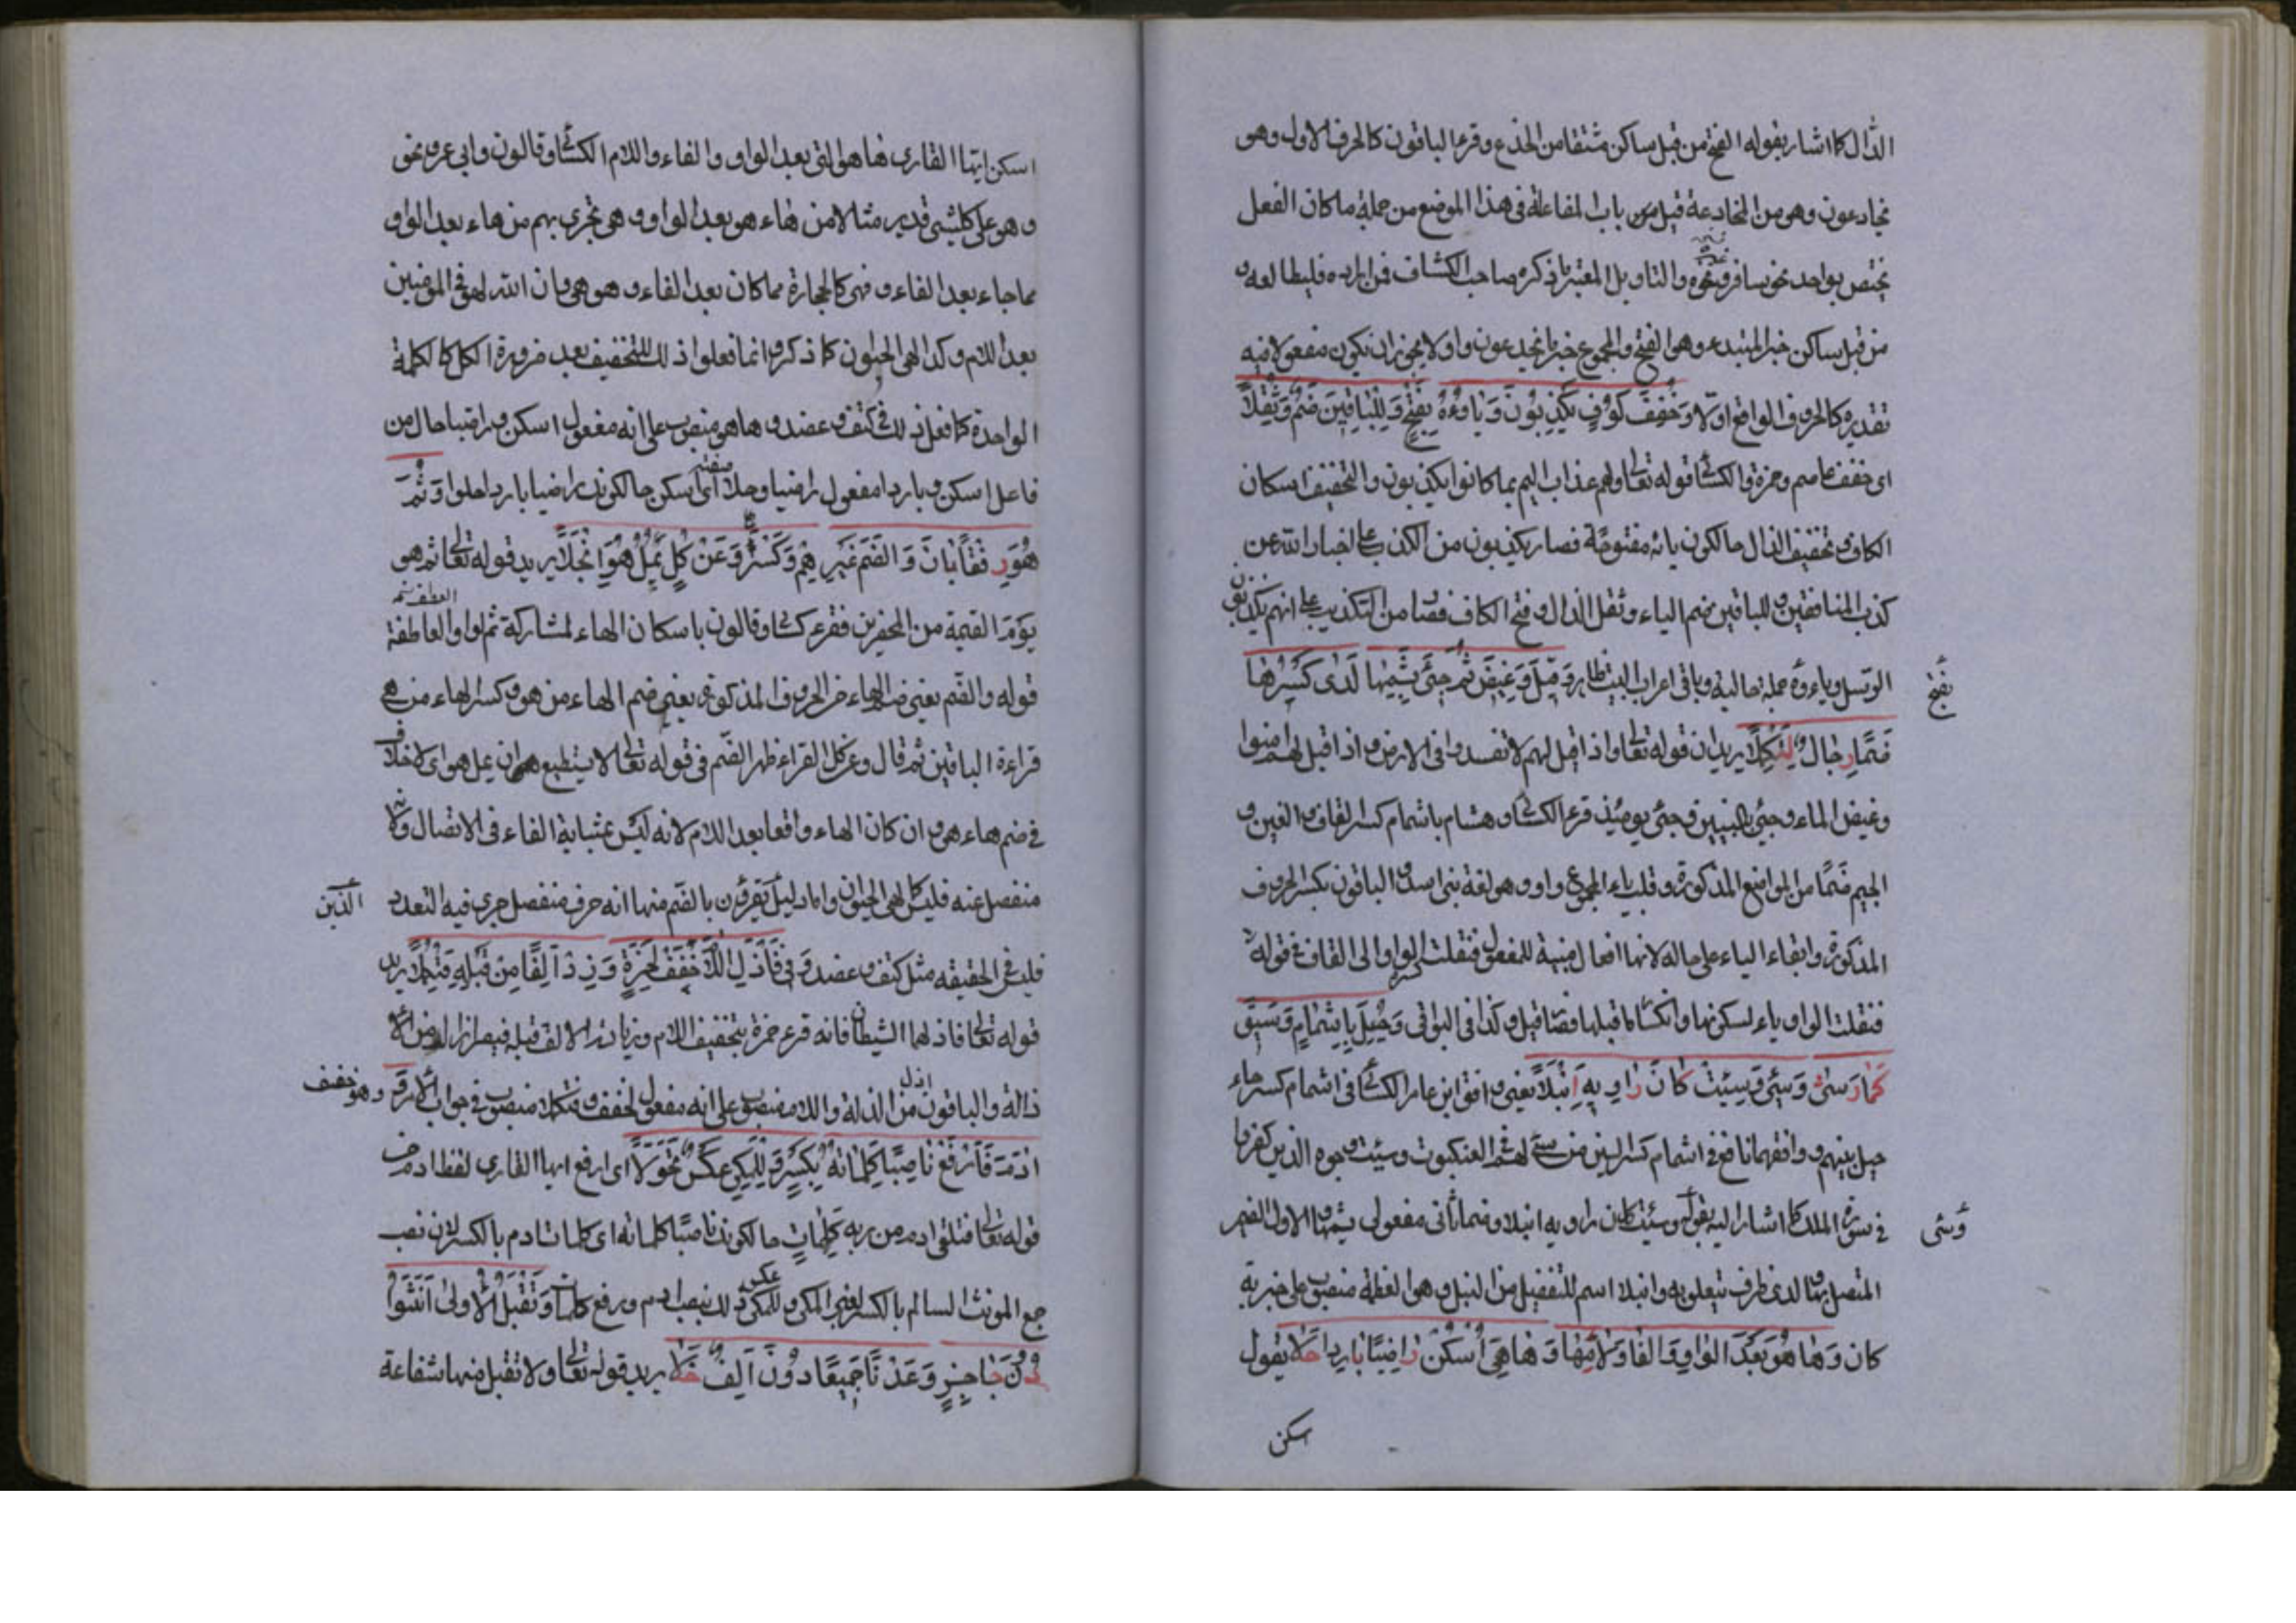 الدال كما اشار بقوله الفتح من قبل ساكن مشتقا من الخدع وقرء الباقون كالحرف الاول وهو
يخادعون وهو من المخادعة قيل من باب المفاعلة في هذا الموضع من جملة ما كان الفعل
يختص بواحد نحو سافر ونحوه والتاويل المعتبر ما ذكره صاحب الكشاف فمن اراده فليطالعه و
من قبل ساكن خبر المبتدء وهو الفتح والمجموع خبر ما يخدعون واو ولا يجوز ان يكون مفعولا فيه
تقديره كالحرف الواقع اولا وَخَفَّفَ كُوفٍ يَكْذِبُونَ وَيَاؤُهُ بِفَتْحٍ وَلِلْبَاقِينَ ضُمَّ وَثُقِّلَا
اى خفف عاصم وحمزة والكسائى قوله تعالى ولهم عذاب اليم بما كانوا يكذبون والتخفيف اسكان
الكاف وتخفيف الذال حالكون يائه مفتوحة فصار يكذبون من الكذب على اخبار الله عن
كذب المنافقين وللباقين ضم الياء وثقل الذال وفتح الكاف فصار من التكذيب على انهم يكذبون
الرسل وياءوه جملة حالية وباقى اعراب البيت ظاهر وَقِيلَ وَغِيضَ ثُمَّ جِئَ يُشِمُّهَا لَدَى كَسْرِهَا
بفتح
ضَمًّا رِجَالٌ لِتَكْمُلَا يريد ان قوله تعالى واذا قيل لهم لا تفسدوا فى الارض واذا قيل لهم امنوا
وغيض الماء وجئ بالنبيين وجئ يومئذ قرء الكسائى وهشام باشمام كسر القاف والغين و
الجيم ضمًا من المواضع المذكورة وقلب ياء المجموع واوا وهو لغة بنى اسد والباقون بكسر الحروف
المذكورة وابقاء الياء على حاله لانها افعال مبنية للمفعول فنقلت كسرة الواو الى القاف فى قوله
فنقلت الواو ياء لسكونها وانكسار ما قبلها فصار قيل وكذا فى البواقى وَحِيلَ بِإِشْمَامٍ وَسِيقَ
كَمَا رَسَى وَسِئَ وَسِيئَتْ كَانَ رَاوِيهِ أَنْبَلَا يعنى وافق ابن عامر الكسائى فى اشمام كسر حاء
حيل بينهم ووافقهما نافع فى اشمام كسر السين من سئ لهم فى العنكبوت وسيئت وجوه الذين كفروا
فى سورة الملك كما اشار اليه بقوله وسيئت كان راويه انبلا وضما ثانى مفعولى يشمها والاول الضمير
وسئى
المتصل بها ولدى ظرف يتعلق به وانبلا اسم للتفضيل من النبل وهو العظمة منصوب على خبرية
كان وَهَا هُوَ بَعْدَ الْوَاوِ وَالْفَا وَلَامِهَا وَهَا هِىَ أَسْكِنْ رَاضِيًا بَارِدًا حَلَا يقول
اسكن
اسكن ايها القارى هاهو التى بعد الواو والفاء واللام الكسائى وقالون وابى عمرو نحو
وهو على كل شىء قدير مثالا من هاء هو بعد الواو وهى تجرى بهم من هاء بعد الواو
مما جاء بعد الفاء وفهى كالحجارة مما كان بعد الفاء وهو هى وان الله لهو فى المؤمنين
بعد اللام وكذا لهى الحيوان كما ذكر وانما فعلوا ذلك للتخفيف بعد ضرورة الكل كالكلمة
الواحدة كما فعل ذلك فى كتف وعضد وهاهو منصوب على انه مفعول اسكن وراضيا حال من
فاعل اسكن وباردا مفعول راضيا وحلا صفته اى اسكن حالكونك راضيا باردا حلوا وَثُمَّ
هُوَ رِفْقًا بَانَ وَالضَّمُّ غَيْرُهُمْ وَكَسْرٌ وَعَنْ كُلٍّ يُمِلَّ هُوَ انْجَلَا يريد قوله تعالى ثم هو
يوم القيمة من المحضرين فقرء كسائى وقالون باسكان الهاء لمشاركة ثم الواو العاطفة
قوله والضم يعنى ضم الهاء غير الحروف المذكورة يعنى ضم الهاء من هو وكسر الهاء من هى
قراءة الباقين ثم قال وعن كل القراء ظهر الضم فى قوله تعالى لا يستطيع ان يمل هو اى لا خلاف
فى ضم هاء هو وان كان الهاء واقعا بعد اللام لانه ليس بمثابة الفاء فى الاتصال ولانه
منفصل عنه فليس كلهى الحيوان واما دليل يقرؤن بالضم منها انه حرف منفصل جرى فيه التعدد
الذين
فليس فى الحقيقه مثل كتف وعضد وَفِى فَأَزَلَّ اللَّامَ خَفِّفْ لِحَمْزَةٍ وَزِدْ أَلِفًا مِنْ قَبْلِهِ فَتُكَمِّلَا يريد
قوله تعالى فازلهما الشيطان فانه قرء حمزة بتخفيف اللام وزيادة الالف قبله فيصير ازال
ذالة والباقون ازل من الذلة واللام منصوب على انه مفعول لخفف وفتكملا منصوب فى جواب الامر وَ
وهو خفف
اٰدَمَ فَارْفَعْ نَاصِبًا كَلِمَاتِهِ بِكَسْرٍ وَلِلْمَكِّى عَكْسٌ تَحَوَّلَا اى ارفع ايها القارى لفظ ادم فى
قوله تعالى فتلقى ادم من ربه كلماتٍ حالكونك ناصبًا كلماته اى كلمات ادم بالكسر لان نصب
جمع المونث السالم بالكسر لغير المكى وللمكى عكس ذلك بنصب ادم ورفع كلمات وَتُقْبَلُ الْأُولَى أَنَّثُوا
دُونَ حَاجِزٍ وَعَدْنَا جَمِيعًا دُونَ أَلِفٍ حَلَا يريد قوله تعالى ولا تقبل منها شفاعة